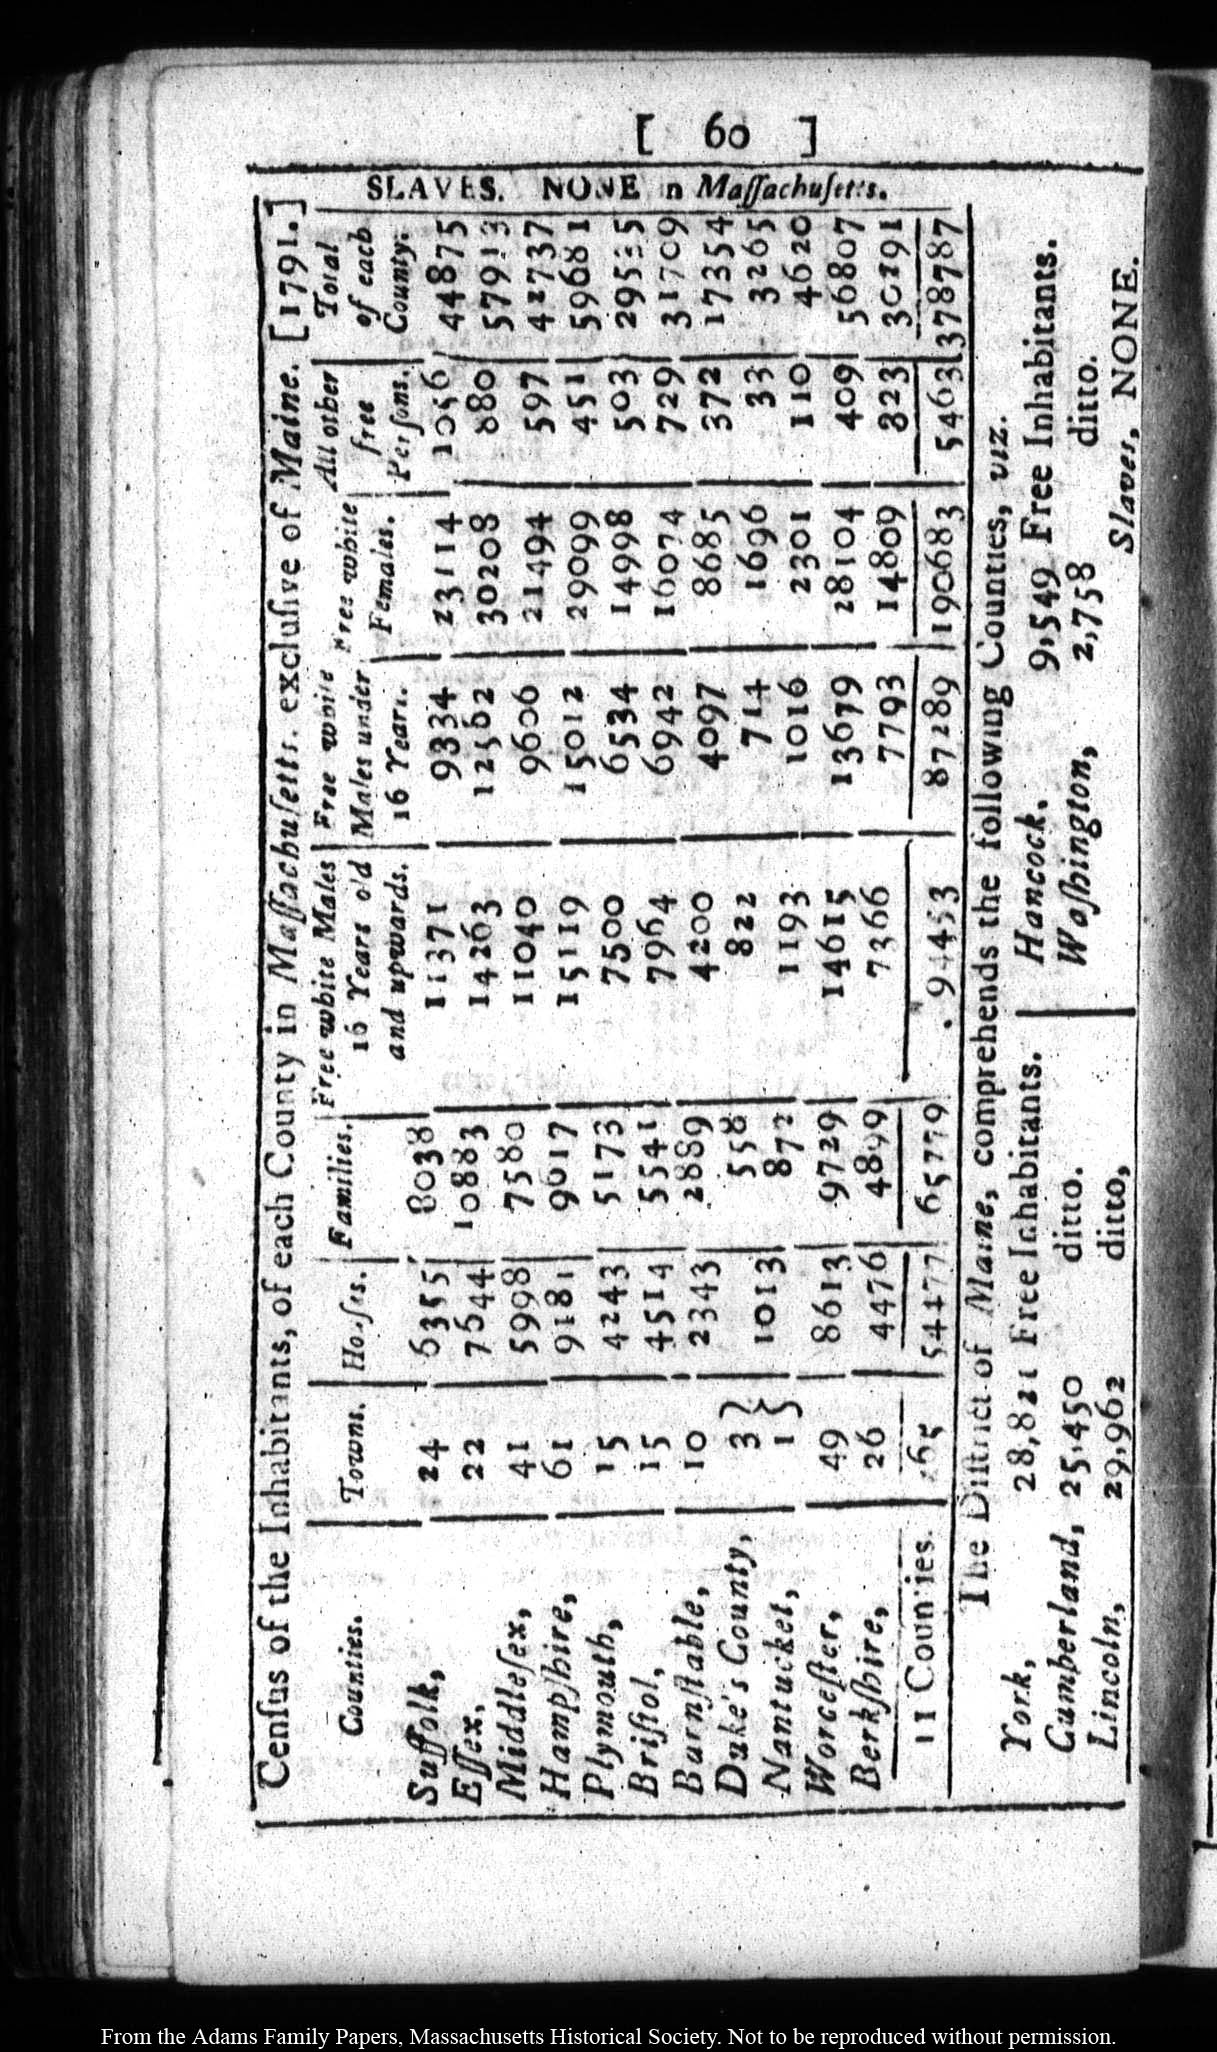 [ 60 ]
Cenſus of the Inhabitants, of each County in Maſſachuſetts. excluſive of Maine. [1791.]
Counties. Towns. Houſes. Families. Free white Males 16 Years old and upwards. Free white Males under 16 Years. Free white Females. All other free Perſons. Total of each County.
Suffolk, 24 6355 8038 11371 9334 23114 1056 44875
Eſſex, 22 7644 10883 14263 12562 30208 880 57913
Middleſex, 41 5998 7580 11040 9606 21494 597 42737
Hampſhire, 61 9181 9617 15119 15012 29099 451 59681
Plymouth, 15 4243 5173 7500 6534 14998 503 29535
Briſtol, 15 4514 5541 7964 6942 16074 729 31709
Barnſtable, 10 2343 2889 4200 4097 8685 372 17354
Duke's County, 3 } 1013 558 822 714 1696 33 3265
Nantucket, 1 } 872 1193 1016 2301 110 4620
Worceſter, 49 8613 9729 14615 13679 28104 409 56807
Berkſhire, 26 4476 4899 7366 7793 14809 323 30291
11 Counties. 265 54377 65779 94453 87289 190683 5463 378787
SLAVES. NONE in Maſſachuſetts.
The Diſtrict of Maine, comprehends the following Counties, viz.
York, 28,821 Free Inhabitants.
Cumberland, 25,450 ditto.
Lincoln, 29,962 ditto,
Hancock. 9,549 Free Inhabitants.
Waſhington, 2,758 ditto.
Slaves, NONE.
From the Adams Family Papers, Massachusetts Historical Society. Not to be reproduced without permission.